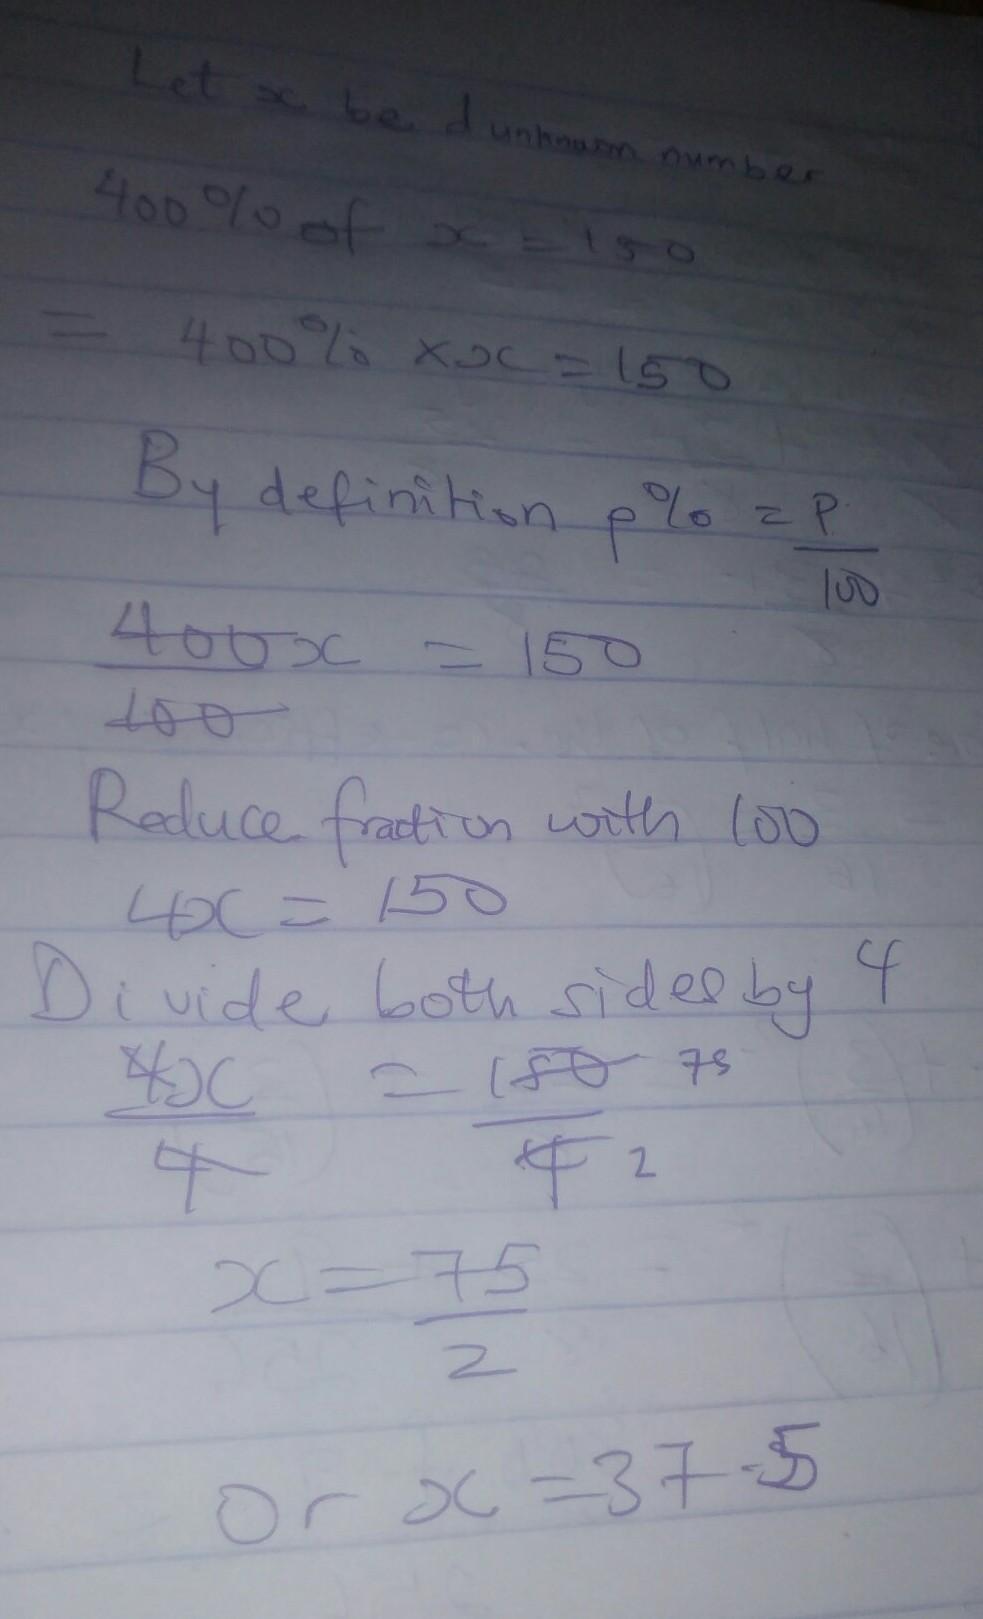 Let x be d unknown number
400% of x = 150
= 400% × x = 150
By definition p% = P/100
400x/100 = 150
Reduce fraction with 100
4x = 150
Divide both sides by 4
4x/4 = 150/4 75 2
x = 75/2
Or x = 37.5